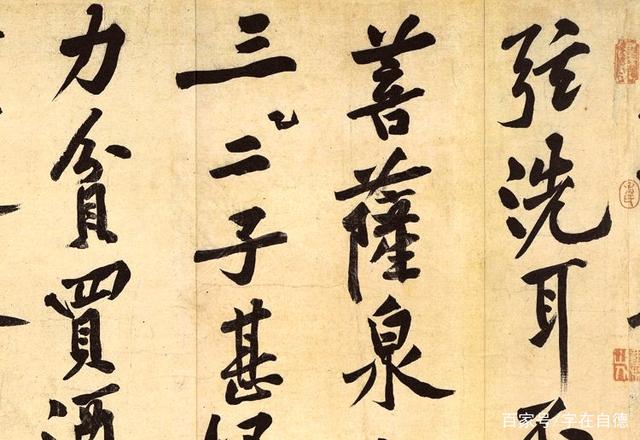 弦洗耳
菩薩泉
三二子甚
力貧買酒
百家号/字在自德